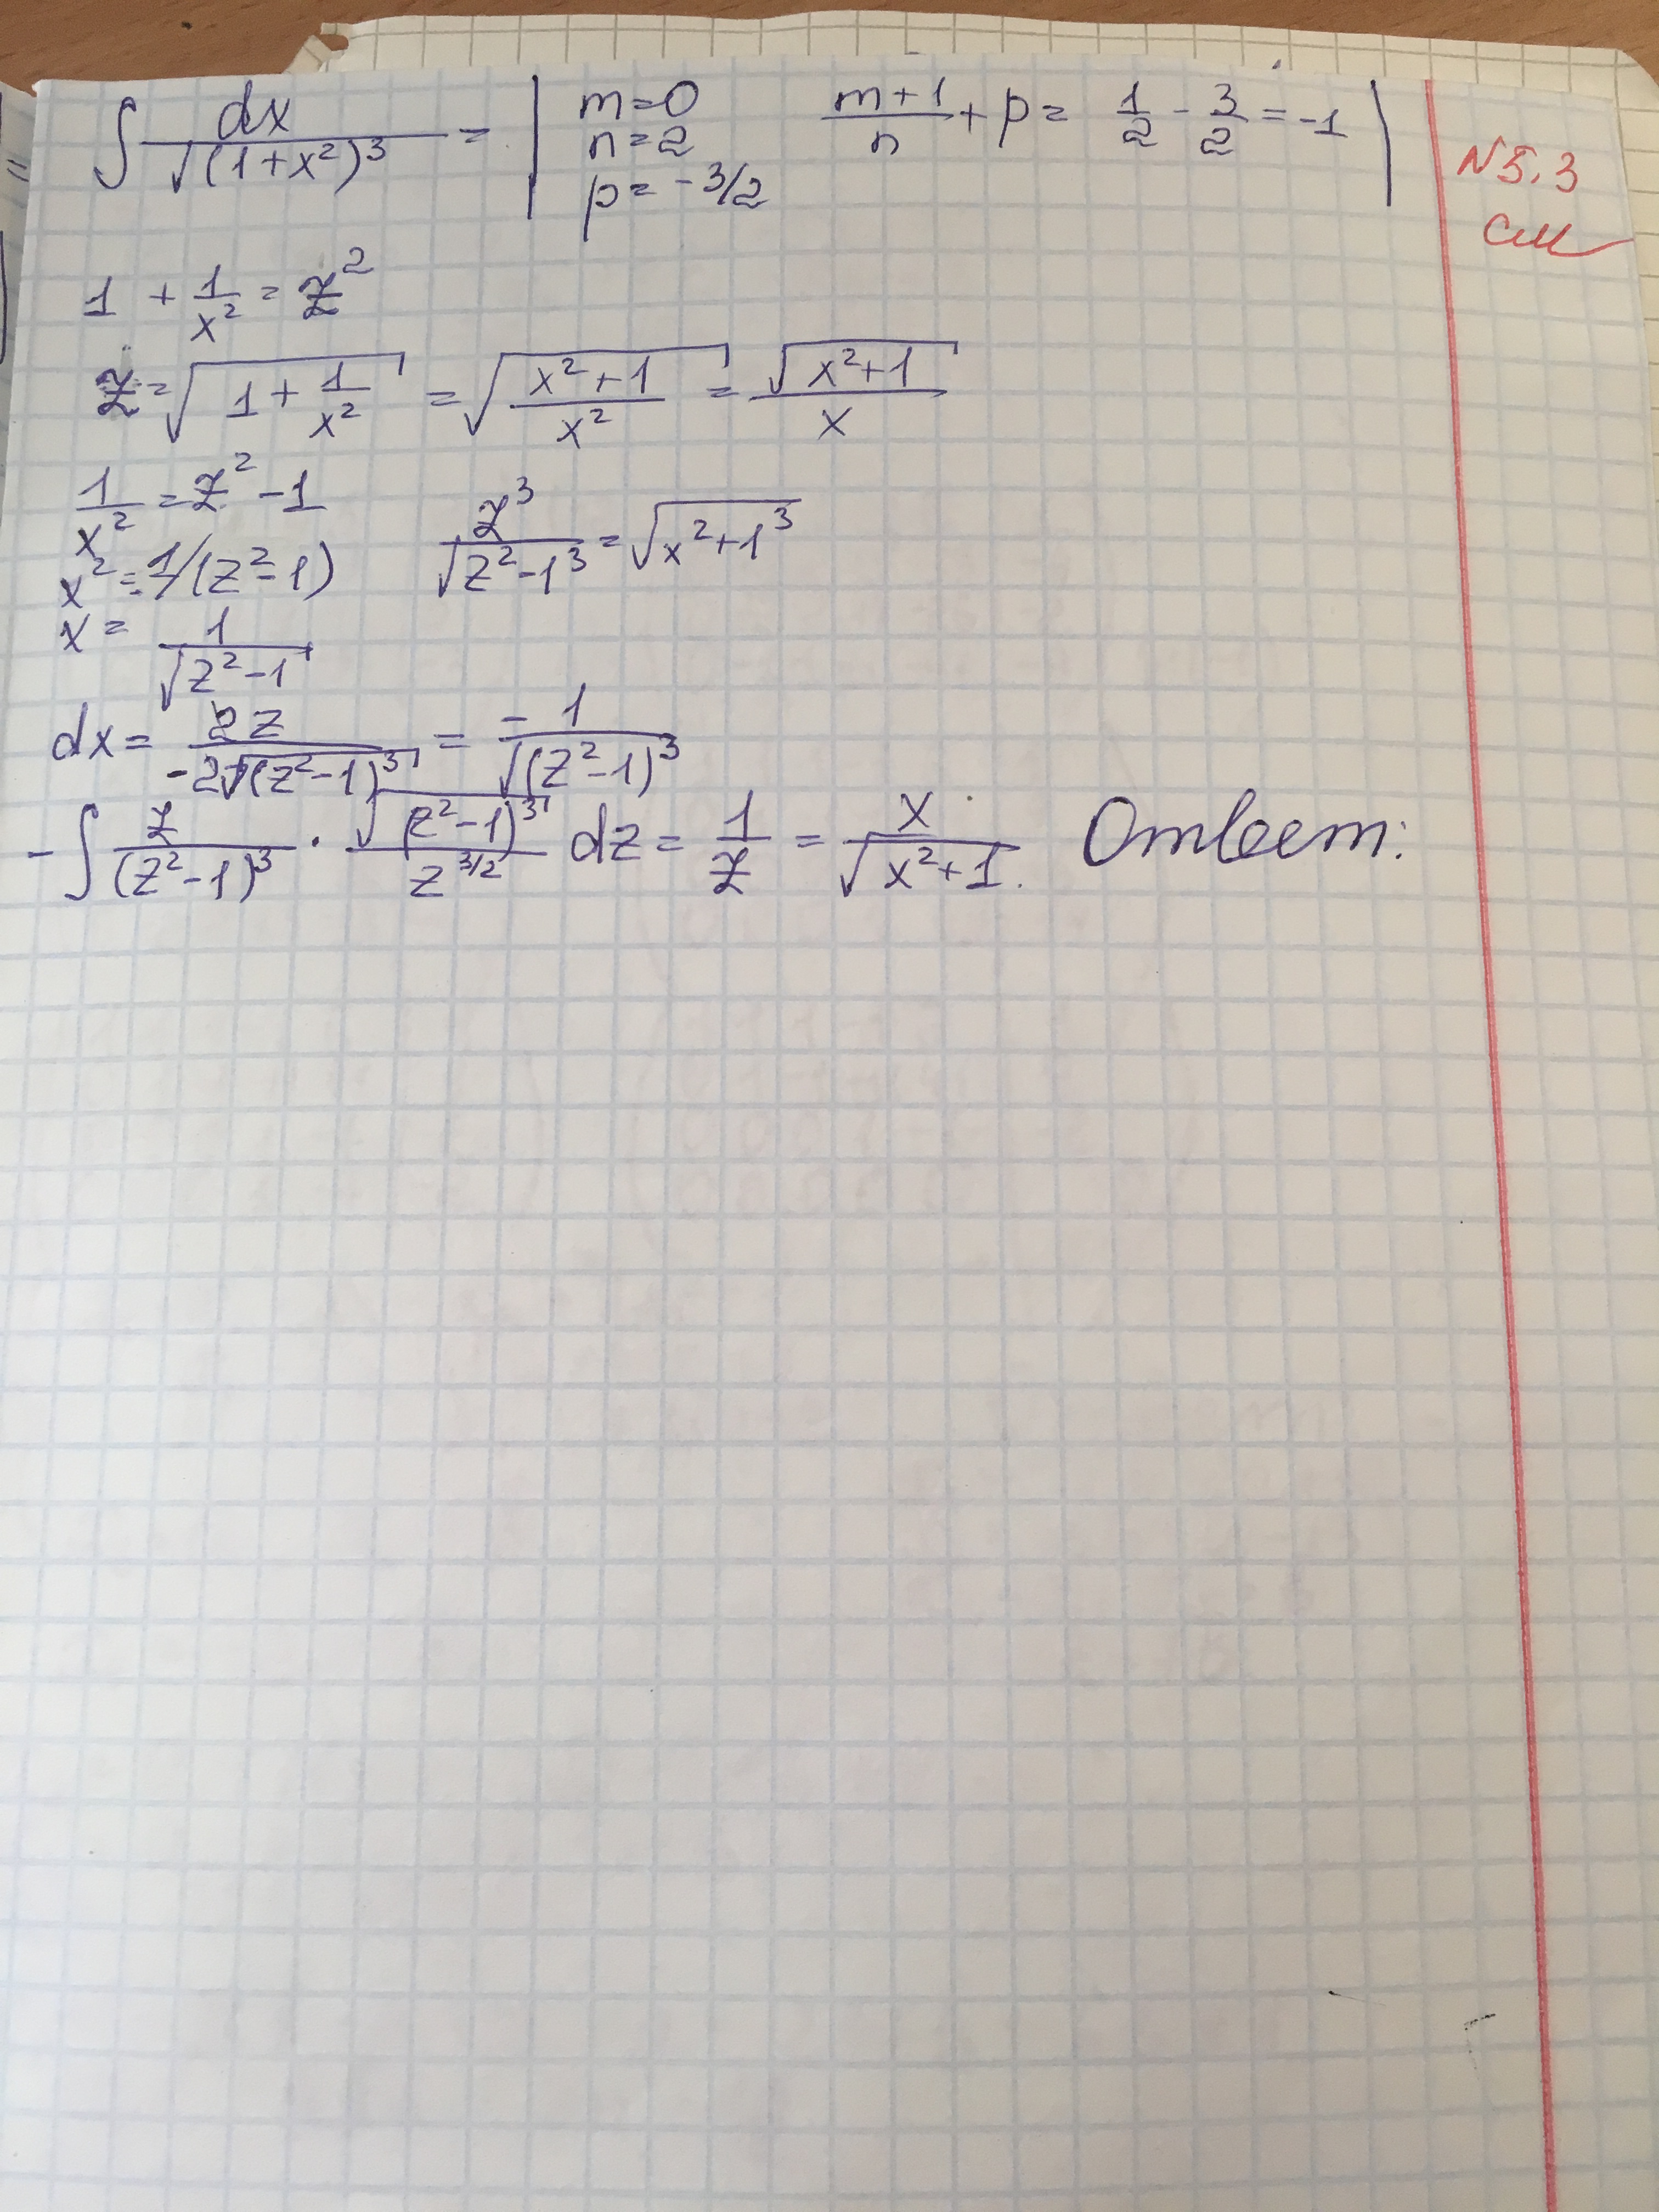 ∫ dx / √(1+x²)³ = | m=0 n=2 p=-3/2 (m+1)/n + p = 1/2 - 3/2 = -1 |
N5.3
1 + 1/x² = z²
z = √(1 + 1/x²) = √((x²+1)/x²) = √(x²+1) / x
1/x² = z² - 1
z³ / √z²-1³ = √x²+1³
x² = 1/(z²-1)
x = 1 / √(z²-1)
dx = 2z / -2√(z²-1)³ = -1 / √(z²-1)³
-∫ z / (z²-1)³ · √(z²-1)³ / z^3/2 dz = 1/z = x / √(x²+1). Ответ: